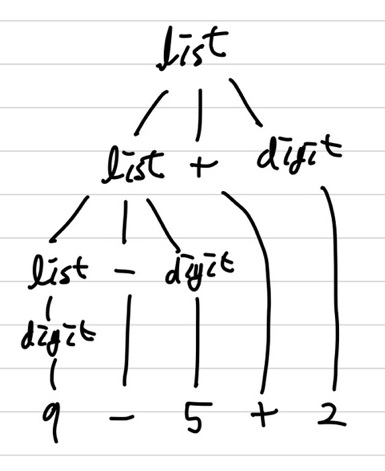 list
list + digit
list - digit
digit
9 - 5 + 2